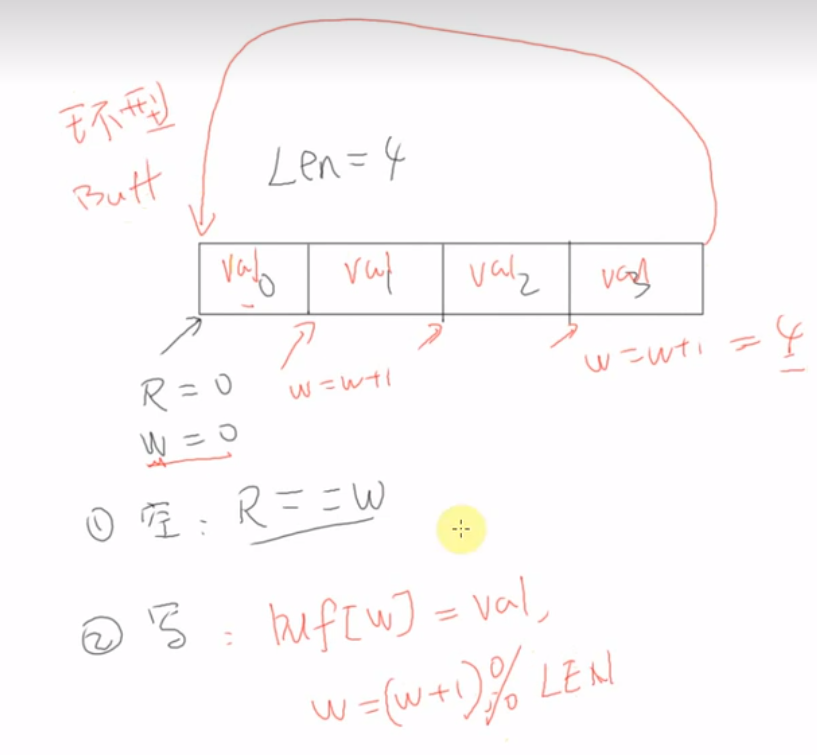 环型
Buff
Len=4
val0 val1 val2 val3
R=0
W=0
w=w+1
w=w+1=4
① 空: R==W
② 写: buf[w]=val,
w=(w+1)%LEN